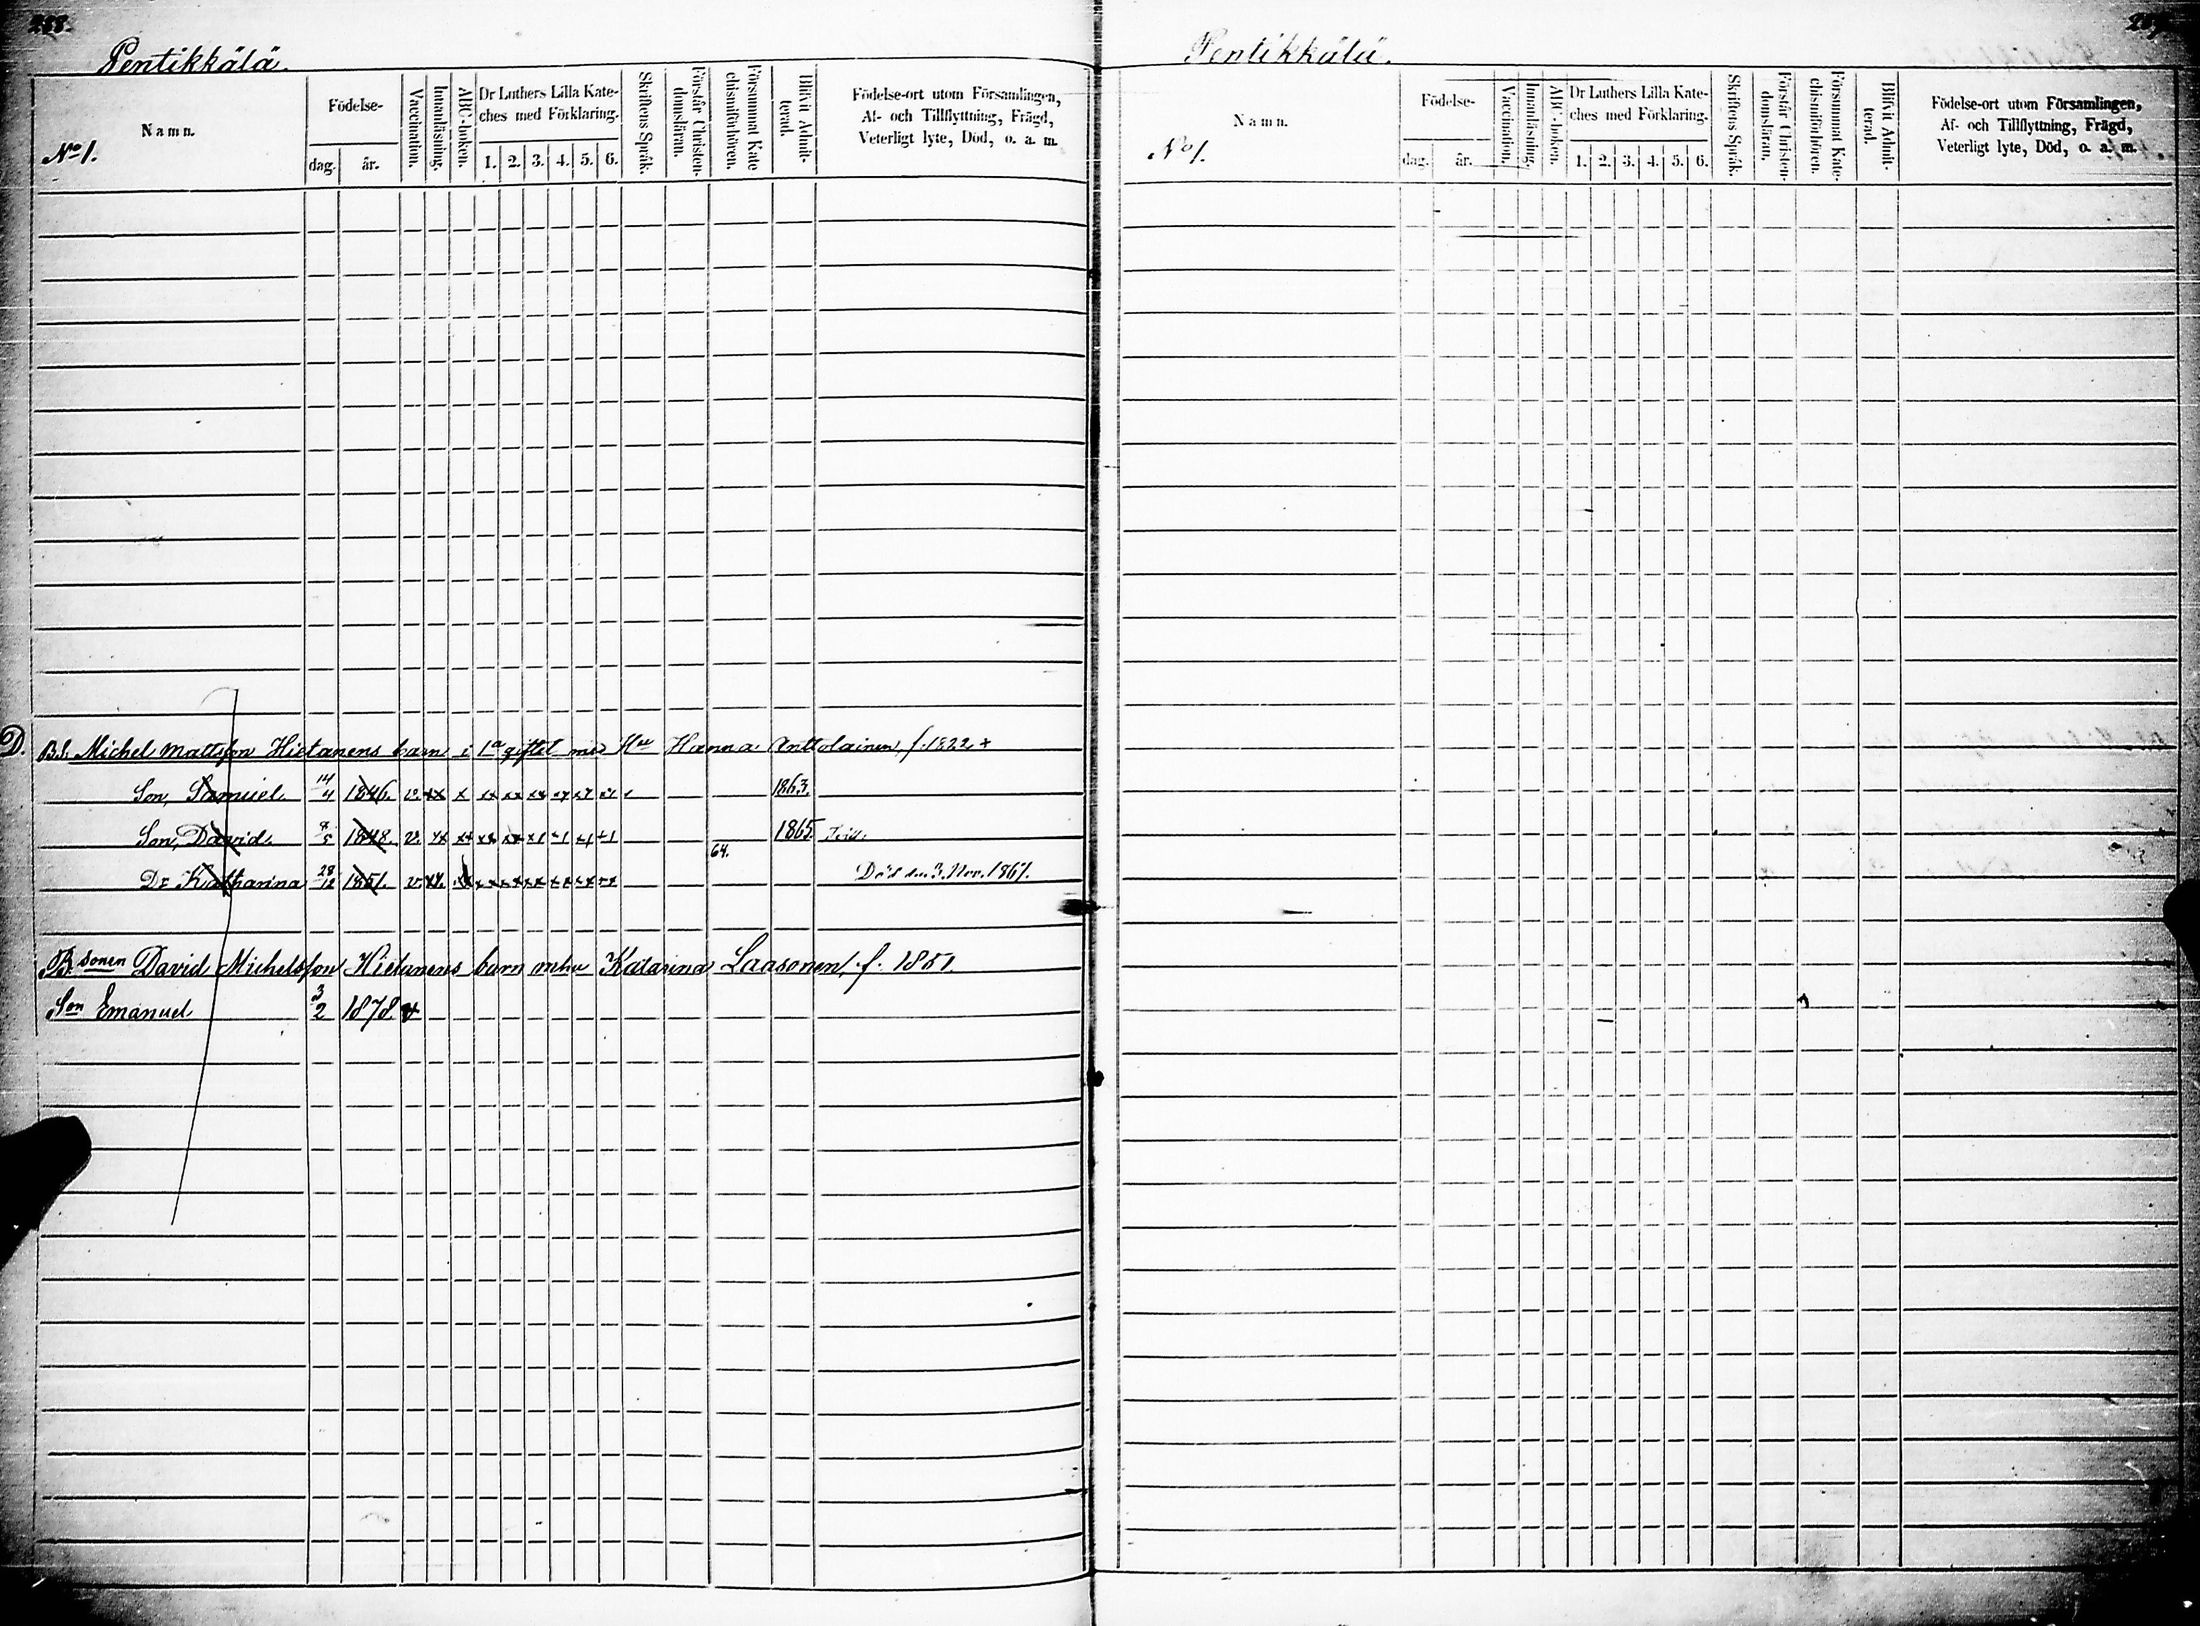 288.
Pentikkälä.
No 1.
Namn.
Födelse-
dag. år.
Vaccination.
Innanläsning.
ABC-boken.
Dr Luthers Lilla Kate-
ches med Förklaring.
1. 2. 3. 4. 5. 6.
Skriftens Språk.
Förstår Christen-
domsläran.
Försummat Kate
chismiförhören.
Blifvit Admit-
terad.
Födelse-ort utom Församlingen,
Af- och Tillflyttning, Frägd,
Veterligt lyte, Död, o. a. m.
D. B.S. Michel Mattsson Hietanens barn i 1a giftet med Hu Hanna Anttolainen f. 1822 +
Son, Samuel 14/4 1846. v. 1863.
Son, David. 1848. v. 1865.
64.
Dr Katharina 28/12 1851. v. Död den 3. Nov. 1867.
B. sonen David Michelsson Hietanens barn m hu Katarina Laasonen, f. 1851
Son Emanuel 3/2 1878
Pentikkälä.
No 1.
Namn.
Födelse-
dag. år.
Vaccination.
Innanläsning.
ABC-boken.
Dr Luthers Lilla Kate-
ches med Förklaring.
1. 2. 3. 4. 5. 6.
Skriftens Språk.
Förstår Christen-
domsläran.
Försummat Kate-
chismiförhören.
Blifvit Admit-
terad.
Födelse-ort utom Församlingen,
Af- och Tillflyttning, Frägd,
Veterligt lyte, Död, o. a. m.